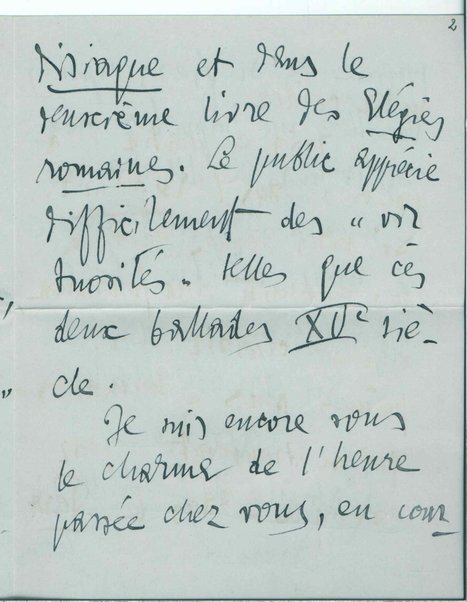 2
disiaque et dans le
deuxième livre des Elégies
romaines. Le public apprécie
difficilement des " vir
tuosités " telles que ces
deux ballades XVe siè-
cle.
Je suis encore sous
le charme de l'heure
passée chez vous, en cour